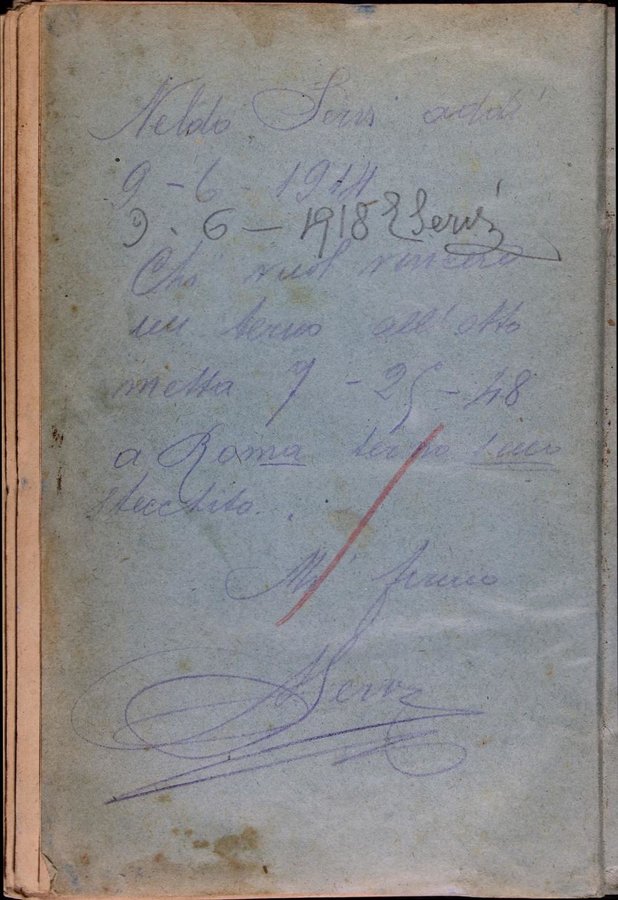 Neldo Servi addì
9 - 6 - 1914
9 - 6 - 1918 E Servi
Chi vuol vincere
un terno all'otto
metta 7 - 25 - 48
a Roma terno secco
stecchito..
Mi firmo
NServi